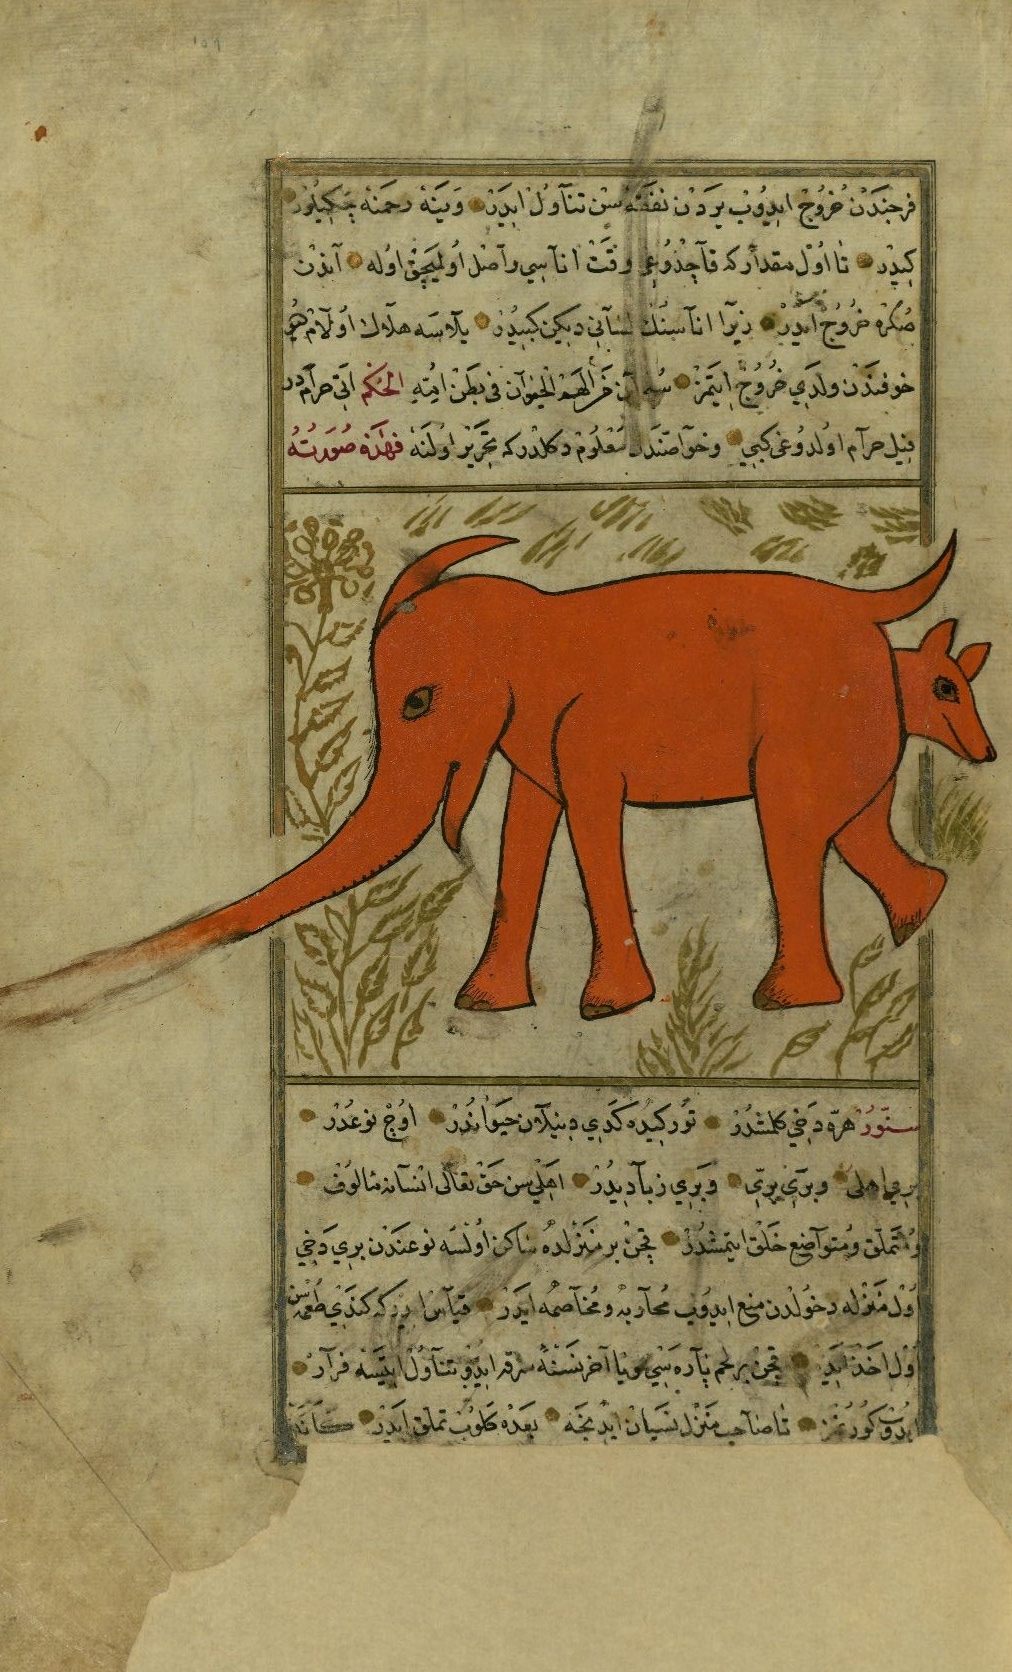 فرجندن خروج ایدوب یردن نفقه سن تناول ایدر وینه رحمنه چکیلور
کیدر تا اول مقدارکه قاچدوغی وقت اناسی واصل اولمیجق اوله آندن
صکره خروج ایدر زیرا اناسنك لسانی دیکن کبیدر یلاسه هلاك اولام
خوفندن ولدی خروج ایتمز فی بطن امه الحکم اتی حرامدر
فیل حرام اولدوغی کبی وخواصندن معلوم دکلدرکه تحریر اولنه فهذه صورته
سنور هره دخی کلمشدر تورکیده کدی دینیلان حیواندر اوچ نوعدر
بری اهلی وبری بری وبری زبادیدر اهلی سن حق تعالی انسانه مألوف
ومتملق ومتواضع خلق ایتمشدر قچن بر منزلده ساکن اولسه نوعندن بری دخی
اول منزله دخولدن منع ایدوب محاربه ومخاصمه ایدر قیاس ایدرکه کندی طعمه سن
اول اخذ ایدر قچن بر لحم پاره سی ویا آخر نسنه سرقه ایدوب تناول ایتسه فرار
ایدوب کورنمز تا صاحب منزل نسیان ایدنجه بعده کلوب تملق ایدر کانه